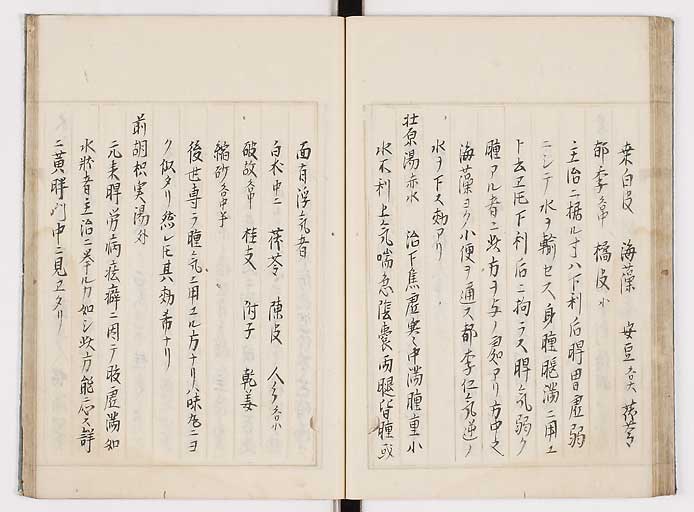 桑白皮　海藻　赤豆各大　茯苓
郁李各中　橘皮小
主治ニ據ル寸ハ下利后脾胃虚弱
ニシテ水ヲ輸セス身腫脹満ニ用ユ
ト云ヱ𪜈下利后ニ拘ラス脾気弱ク
腫アル者ニ此方ヲ与ノ可アリ方中之
海藻ヨク小便ヲ通ス郁李仁気逆ノ
水ヲ下ス効アリ
壮原湯赤水　治下焦虚寒中満腫重小
水不利上気喘急陰嚢両腿皆腫或
面有浮気者
白朮中二　茯苓　陳皮　人参各小
破故各中　桂支　附子　乾姜
縮砂各中ノ下
後世専ラ腫気ニ用ユル方ナリ八味丸ニヨ
ク似タリ然レ𪜈其効希ナリ
前胡枳実湯外
元来脾労病痃癖ニ因テ致虚満如
水状者主治ニ挙ルカ如シ此方能応ス詳
ニ黄胖門中ニ見ヱタリ